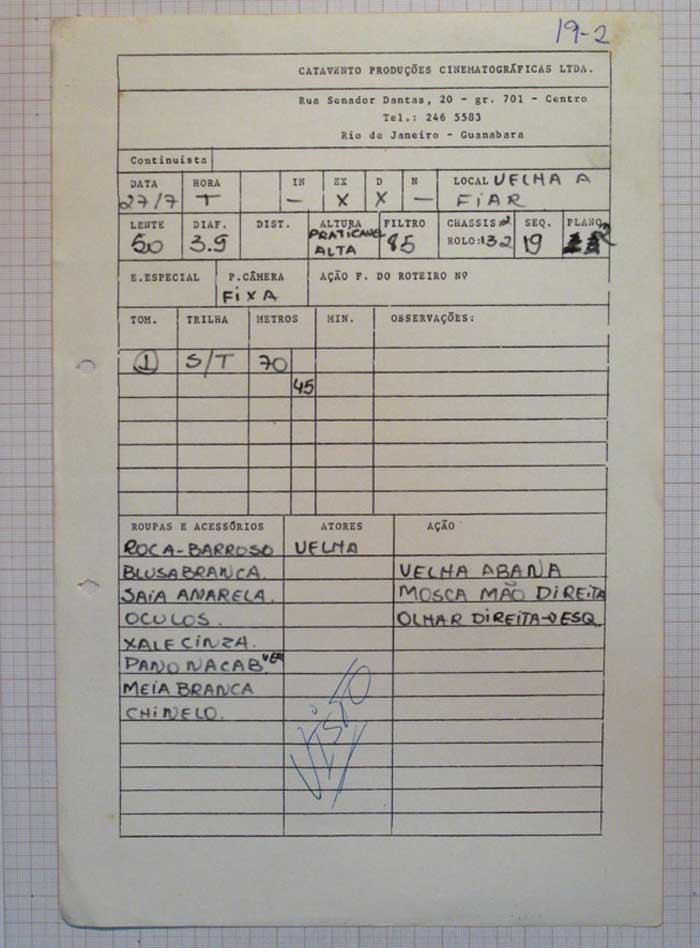 19-2
CATAVENTO PRODUÇÕES CINEMATOGRÁFICAS LTDA.
Rua Senador Dantas, 20 - gr. 701 - Centro
Tel.: 246 5583
Rio de Janeiro - Guanabara
Continuista
DATA HORA IN EX D N LOCAL VELHA A
27/7 T — X X — FIAR
LENTE DIAF. DIST. ALTURA FILTRO CHASSIS:2 SEQ. PLANO
50 3.5 PRATICAVEL ALTA 85 ROLO:132 19 2
E.ESPECIAL P.CÂMERA AÇÃO F. DO ROTEIRO Nº
FIXA
TOM. TRILHA METROS MIN. OBSERVAÇÕES:
1 S/T 70
45
ROUPAS E ACESSÓRIOS ATORES AÇÃO
ROCA-BARROSO VELHA
BLUSA BRANCA. VELHA ABANA
SAIA AMARELA. MOSCA MÃO DIREITA
OCULOS. OLHAR DIREITA→ESQ
XALE CINZA.
PANO NA CAB
MEIA BRANCA
CHINELO.
VISTO